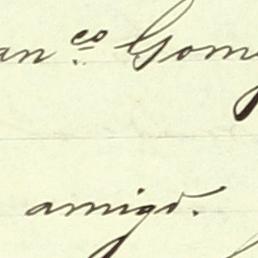 an.co Gom
amigo.